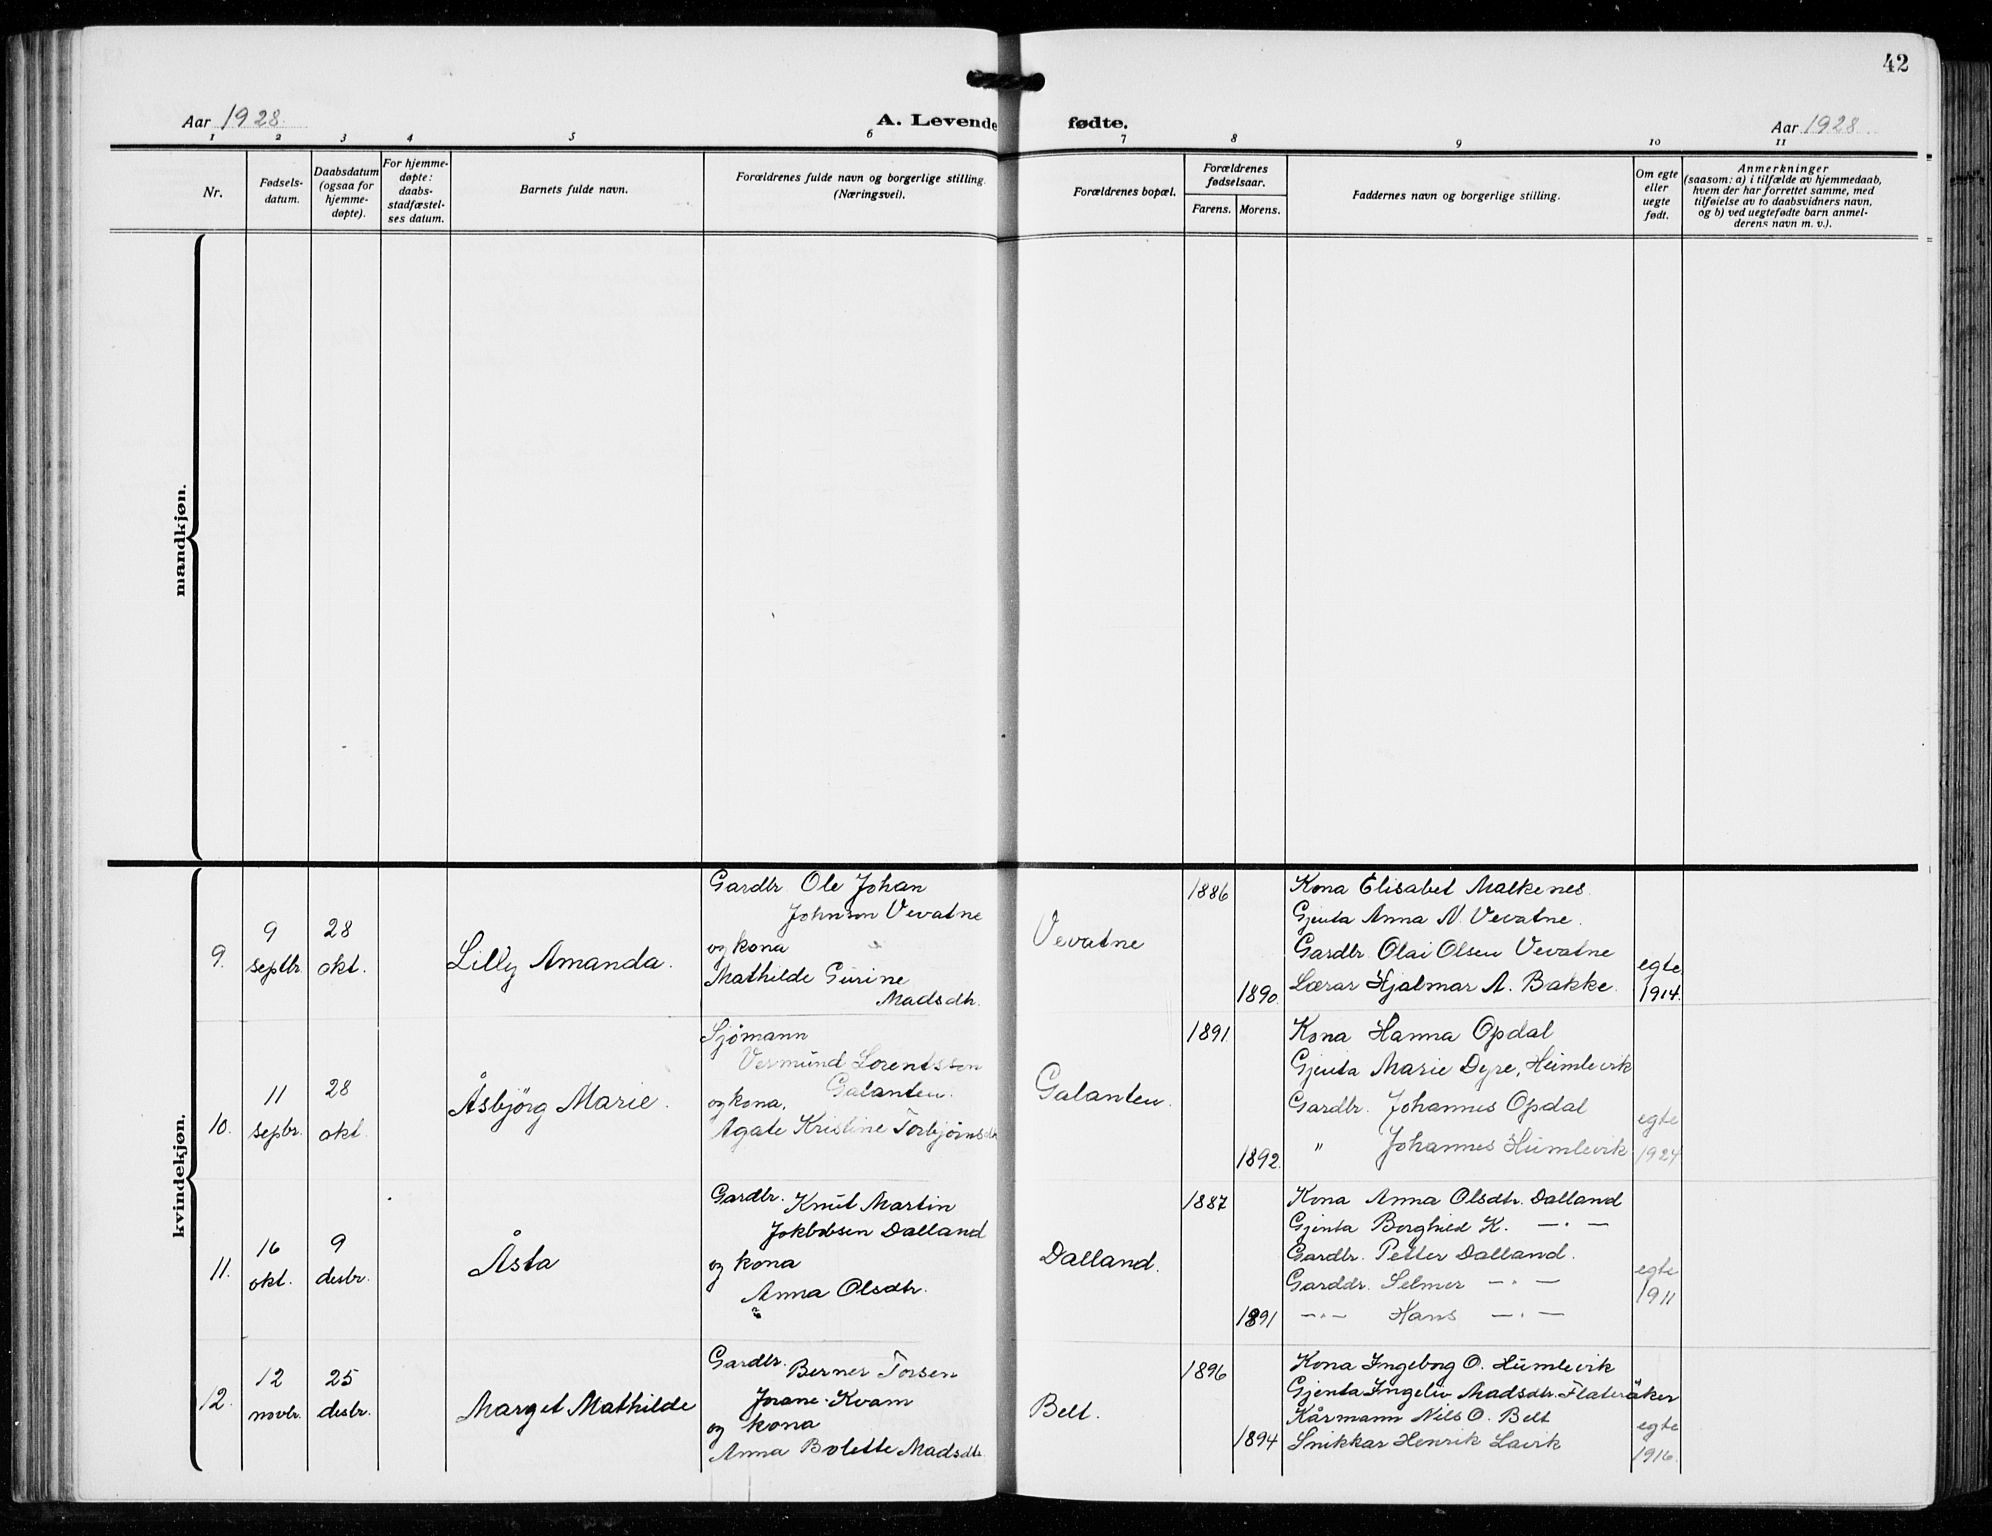 42
Aar 1928.
A. Levende fødte.
Aar 1928
1 2 3 4 5 6 7 8 9 10 11
Nr.
Fødsels-
datum.
Daabsdatum
(ogsaa for
hjemme-
døpte).
For hjemme-
døpte:
daabs-
stadfæstel-
ses datum.
Barnets fulde navn.
Forældrenes fulde navn og borgerlige stilling.
(Næringsvei).
Forældrenes bopæl.
Forældrenes
fødselsaar.
Farens. Morens.
Faddernes navn og borgerlige stilling.
Om egte
eller
uegte
født.
Anmerkninger
(saasom: a) i tilfælde av hjemmedaab,
hvem der har forrettet samme, med
tilføielse av to daabsvidners navn,
og b) ved uegtefødte barn anmel-
derens navn m. v.).
mandkjøn.
kvindekjøn.
9.
9
septbr.
28
okt.
Lilly Amanda.
Gardbr. Ole Johan
Johnson Vevatne
og kona
Mathilde Gurine
Madsdtr.
Vevatne
1886
1890.
Kona Elisabet Malkenes.
Gjenta Anna N. Vevatne.
Gardbr. Olai Olsen Vevatne
Lærar Hjalmar A. Bakke.
egte
1914.
10.
11
septbr.
28
okt.
Åsbjörg Marie.
Sjømann
Vermund Lorentssen
Galanten.
og kona,
Agate Kristine Torbjørnsdtr
Galanten.
1891
1892.
Kona Hanna Opdal
Gjenta Marie Dyre, Humlevik
Gardbr. Johannes Opdal
" Johannes Humlevik
egte
1924
11.
16
okt.
9
desbr.
Åsta
Gardbr. Knut Martin
Jokobsen Dalland
og kona
Anna Olsdtr.
Dalland.
1887
1891
Kona Anna Olsdtr. Dalland
Gjenta Borghild K. —·—
Gardbr. Petter Dalland.
Garddr. Selmer —·—
—·— Hans —·—
egte
1911
12.
12
novbr.
25
desbr.
Marget Mathilde
Gardbr. Berner Torsen
Jorane-Kvam
og kona
Anna Bolette Madsdtr.
Belt.
1896
1894
Kona Ingeborg O. Humlevik
Gjenta Ingeliv Madsdtr. Flateråker
Kårmann Nils O. Belt
Snikkar Henrik Lavik
egte
1916.